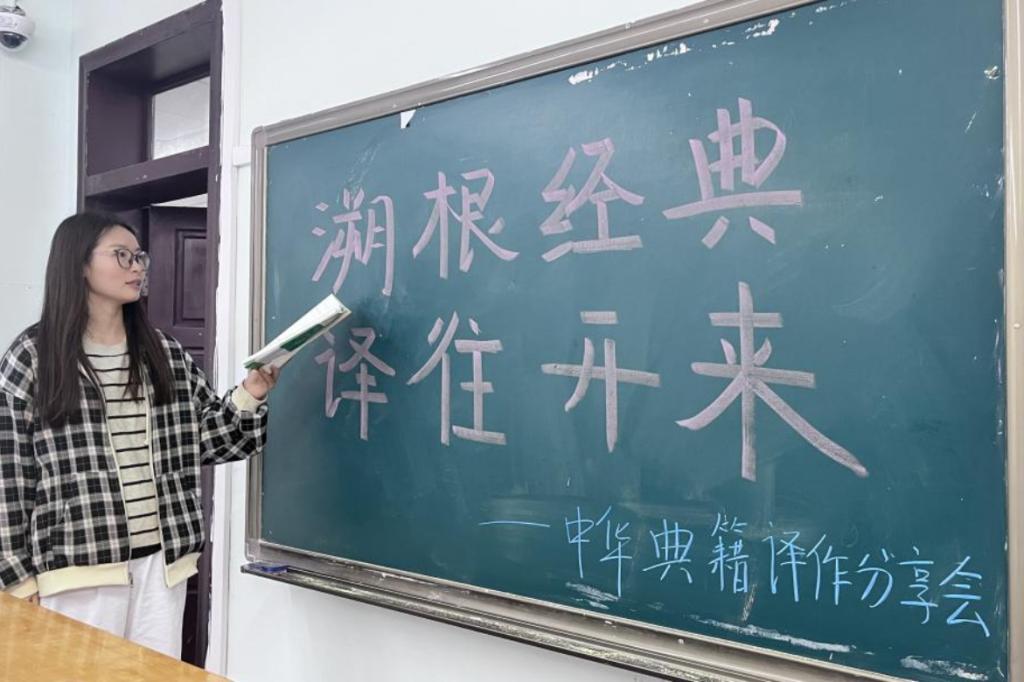 溯根经典
译往开来
——中华典籍译作分享会